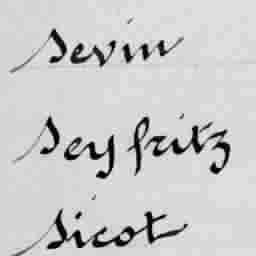 Sevin
Seyfritz
Sicot